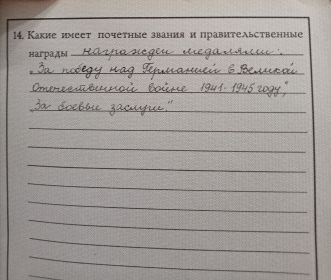 14. Какие имеет почетные звания и правительственные
награды награжден медалями:
„За победу над Германией в Великой
Отечественной войне 1941-1945 году",
„За боевые заслуги."